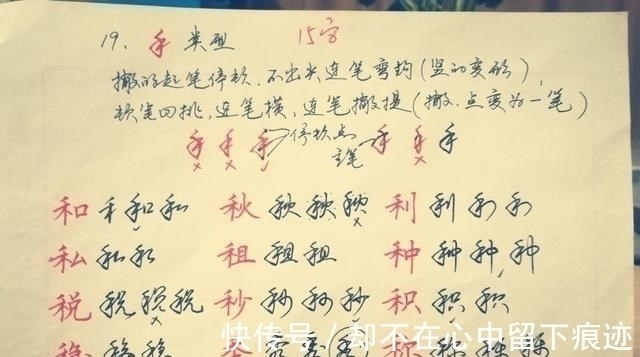 19、禾 类型 15字
撇的起笔停顿、不出尖连笔弯钩(竖的变形),
顿笔回挑,连笔横,连笔撇提(撇、点变为一笔)
停顿点
主笔
和 和 和 私 秋 秋 秋 秋 利 利 利 利
私 私 私 租 租 租 种 种 种 种
税 税 税 税 秒 秒 秒 秒 积 积 积
快传号/却不在心中留下痕迹